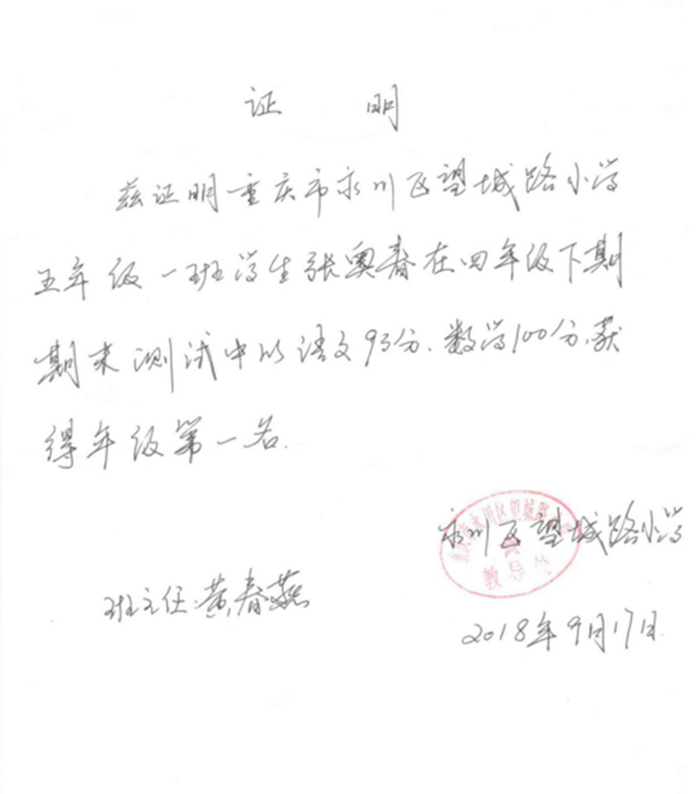 证 明
兹证明重庆市永川区望城路小学
五年级一班学生张奥春在四年级下期
期末测试中以语文93分、数学100分,获
得年级第一名.
永川区望城路小学
教导处
班主任:黄春燕
2018年9月17日